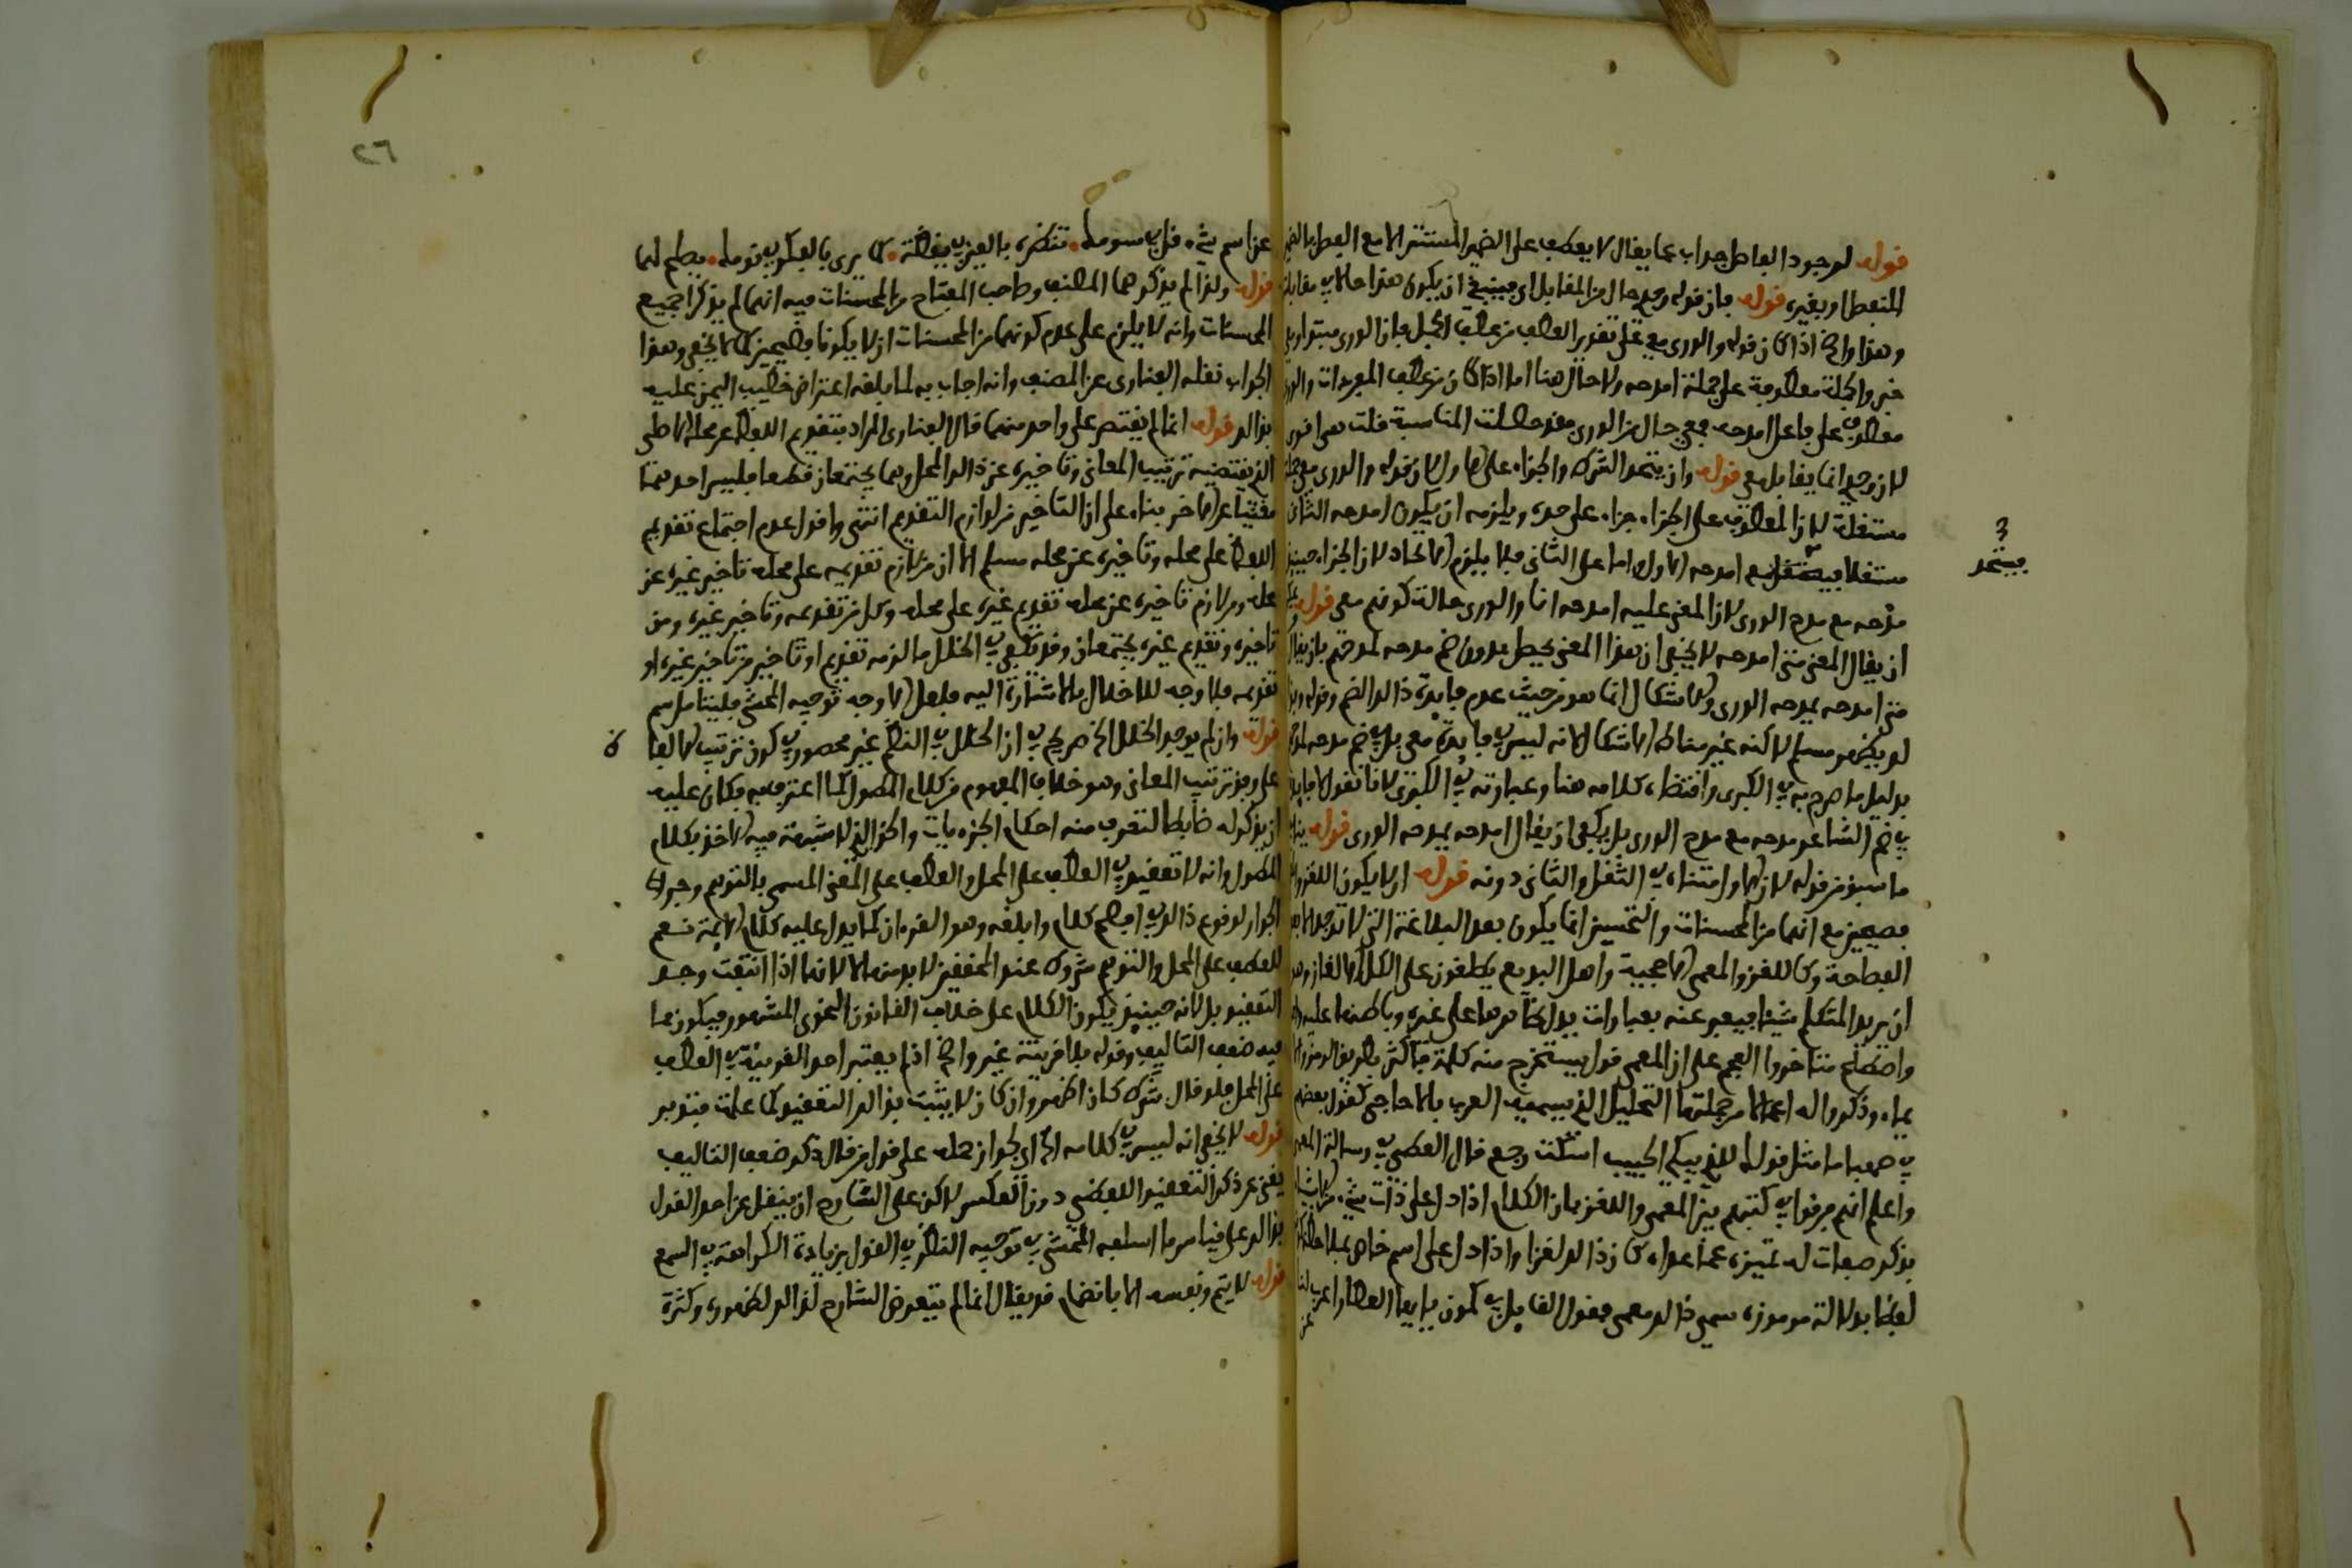 قوله لوجود الفاصل جواب عما يقال لا يعطف على الضمير المستتر الا مع الفصل بالضمير
المنفصل او بغيره قوله فان قوله وحدي حال من المقابل اي فينبغي ان يكون هذا حالا في مقابله
وهذا واضح اذا كان قوله والورى معي على تقدير العطف من عطف الجمل فان الورى مبتدا ومعي
خبر والجملة معطوفة على جملة امدحه ولا حال هنا اما اذا كان من عطف المفردات والورى
معطوف على فاعل امدحه فمعي حال من الورى فقد حصلت المناسبة قلت معى اقوى
لان وحدي انما يقابل معي قوله وان يتحد الشرط والجزاء على الاول لان قوله والورى معي جملة
مستقلة لان المعطوف على الجزاء جزاء على حدة ويلزمه ان يكون امدحه الثاني
مستقلا فيتحد مع امدحه الاول اما على الثاني فلا يلزم الاتحاد لان الجزاء حينئذ
مدحه مع مدح الورى لان المعنى عليه امدحه انا والورى حالة كونهم معي قوله
ان يقال المعنى متى امدحه لا يخفى ان هذا المعنى يحصل بدون ضم مدحه لمدحهم بان يقال
متى امدحه يمدحه الورى والاشكال انما هو من حيث عدم فايدة ذالك الضم وقوله وبهذا
لو يظهر مسلم لاكنه غير مناط الاشكال لانه ليس في فايدة معي بل في ضم مدحه لمدحهم
بدليل ما صرح به في الكبرى واقتضاء كلامه هنا وعبارته في الكبرى لانا نقول لا فايدة
في ضم الشاعر مدحه مع مدح الورى بل يكفي ان يقال امدحه يمدحه الورى قوله
ما سبق من قوله لان الاول امتناء في الثقل والثاني دونه قوله ان لا يكون اللغز والمعمى
فصيحين مع انهما من المحسنات والتحسين انما يكون بعد البلاغة التي لا توجد الا بعد
الفصاحة وكاللغز والمعمى الاحجية واهل البديع يطلقون على الكل الالغاز وهو
ان يريد المتكلم شيئا فيعبر عنه بعبارات يدل ظاهرها على غيره وباطنها عليه
واصطلح متاخروا العجم على ان المعمى قول يستخرج منه كلمة فاكثر بطريق الرمز والايماء
بماء وذكروا له اعمالا من جملتها التحليل الذي يسميه العرب بالاحاجي كقول بعضهم
في صهبا ما مثل قولك للذي يبكي الحبيب اسكت رجع قال القطبي في رسالة المعمى
واعلم انهم فرقوا في كتبهم بين المعمى واللغز بان الكلام اذا دل على ذات شيء من الاشياء
بذكر صفات له تميزه عما عداه كان ذالك لغزا واذا دل على اسم خاص بملاحظة كونه
لفظا بدلالة مرموزة سمى ذالك معمى فقول القايل في كمون يا ايها العطار اعرب لنا
عن
فيتحد
٢٦
عن اسم شيء قل في سومك تنظره بالعين في يقظة كما يرى بالقلب في نومك يصلح لهما
قوله ولذا لم يذكرهما المصنف وصاحب المفتاح من المحسنات فيه انهما لم يذكرا جميع
المحسنات وانه لا يلزم على عدم كونهما من المحسنات ان لا يكونا فصيحين كما لا يخفى وهذا
الجواب نقله الفنارى عن المصنف وانه اجاب به لما بلغه اعتراض خطيب اليمن عليه
بذالك قوله انما لم يقتصر على واحد منهما قال الفنارى المراد بتقديم اللفظ عن محله الاصلى
الذي يقتضيه ترتيب المعاني وتاخيره عن ذالك المحل وهما يجتمعان قطعا فليس احدهما
مغنيا عن الاخر بناء على ان التاخير من لوازم التقديم انتهى واقول عدم اجتماع تقديم
اللفظ على محله وتاخيره عن محله مسلم الا ان من لازم تقديمه على محله تاخير غيره عن
محله ومن لازم تاخيره عن محله تقديم غيره على محله وكل من تقديمه وتاخير غيره ومن
تاخيره وتقديم غيره يجتمعان وقد يكفي في الخلل ما لزمه تقديم او تاخير من تاخير غيره او
تقديمه فلا وجه للاخلال بالاشارة اليه فلعل الاوجه توجيه المحشي فليتامل سم
قوله وان لم يوجد الخلل الخ صريح في ان الخلل في النظم غير محصور في كون ترتيب الالفاظ
على وفق ترتيب المعاني وهو خلاف المفهوم من كلام المطول كما اعترف به فكان عليه
ان يذكر له ضابطا لتعرف منه احكام الجزءيات والحق الذي لا شبهة فيه الاخذ بكلام
المطول وانه لا تعقيد في العطف على المحل والعطف على المعنى المسمى بالتوهم وجر
الجوار لوقوع ذالك في افصح كلام وابلغه وهو القرءان كما يدل عليه كلام الايمة نعم
للعطف على المحل والتوهم شروط عند المحققين لا بد منها لا لانها اذا انتفت وجد
التعقيد بل لانه حينئذ يكون الكلام على خلاف القانون النحوي المشهور فيكون مما
فيه ضعف التاليف وقوله بلا قرينة غير واضح اذ لم يعتبر احد القرينة في العطف
على المحل فلو قال شرط كان اظهر وان كان لا يثبت بذالك التعقيد كما علمت فتدبر
قوله لا يخفى انه ليس في كلامه الخ اي لجواز حمله على قول من قال ذكر ضعف التاليف
يغني عن ذكر التعقيد اللفظي دون العكس لاكن على الشارح ان ينقل عن احد القول
بذالك على قياس ما اسلفه المحشي في توجيه النظر في القول بزيادة الكراهة في السمع
قوله لا يتم وبعسه الا بانضمام قد يقال انما لم يتعرض الشارح لذالك لظهوره وكثرة